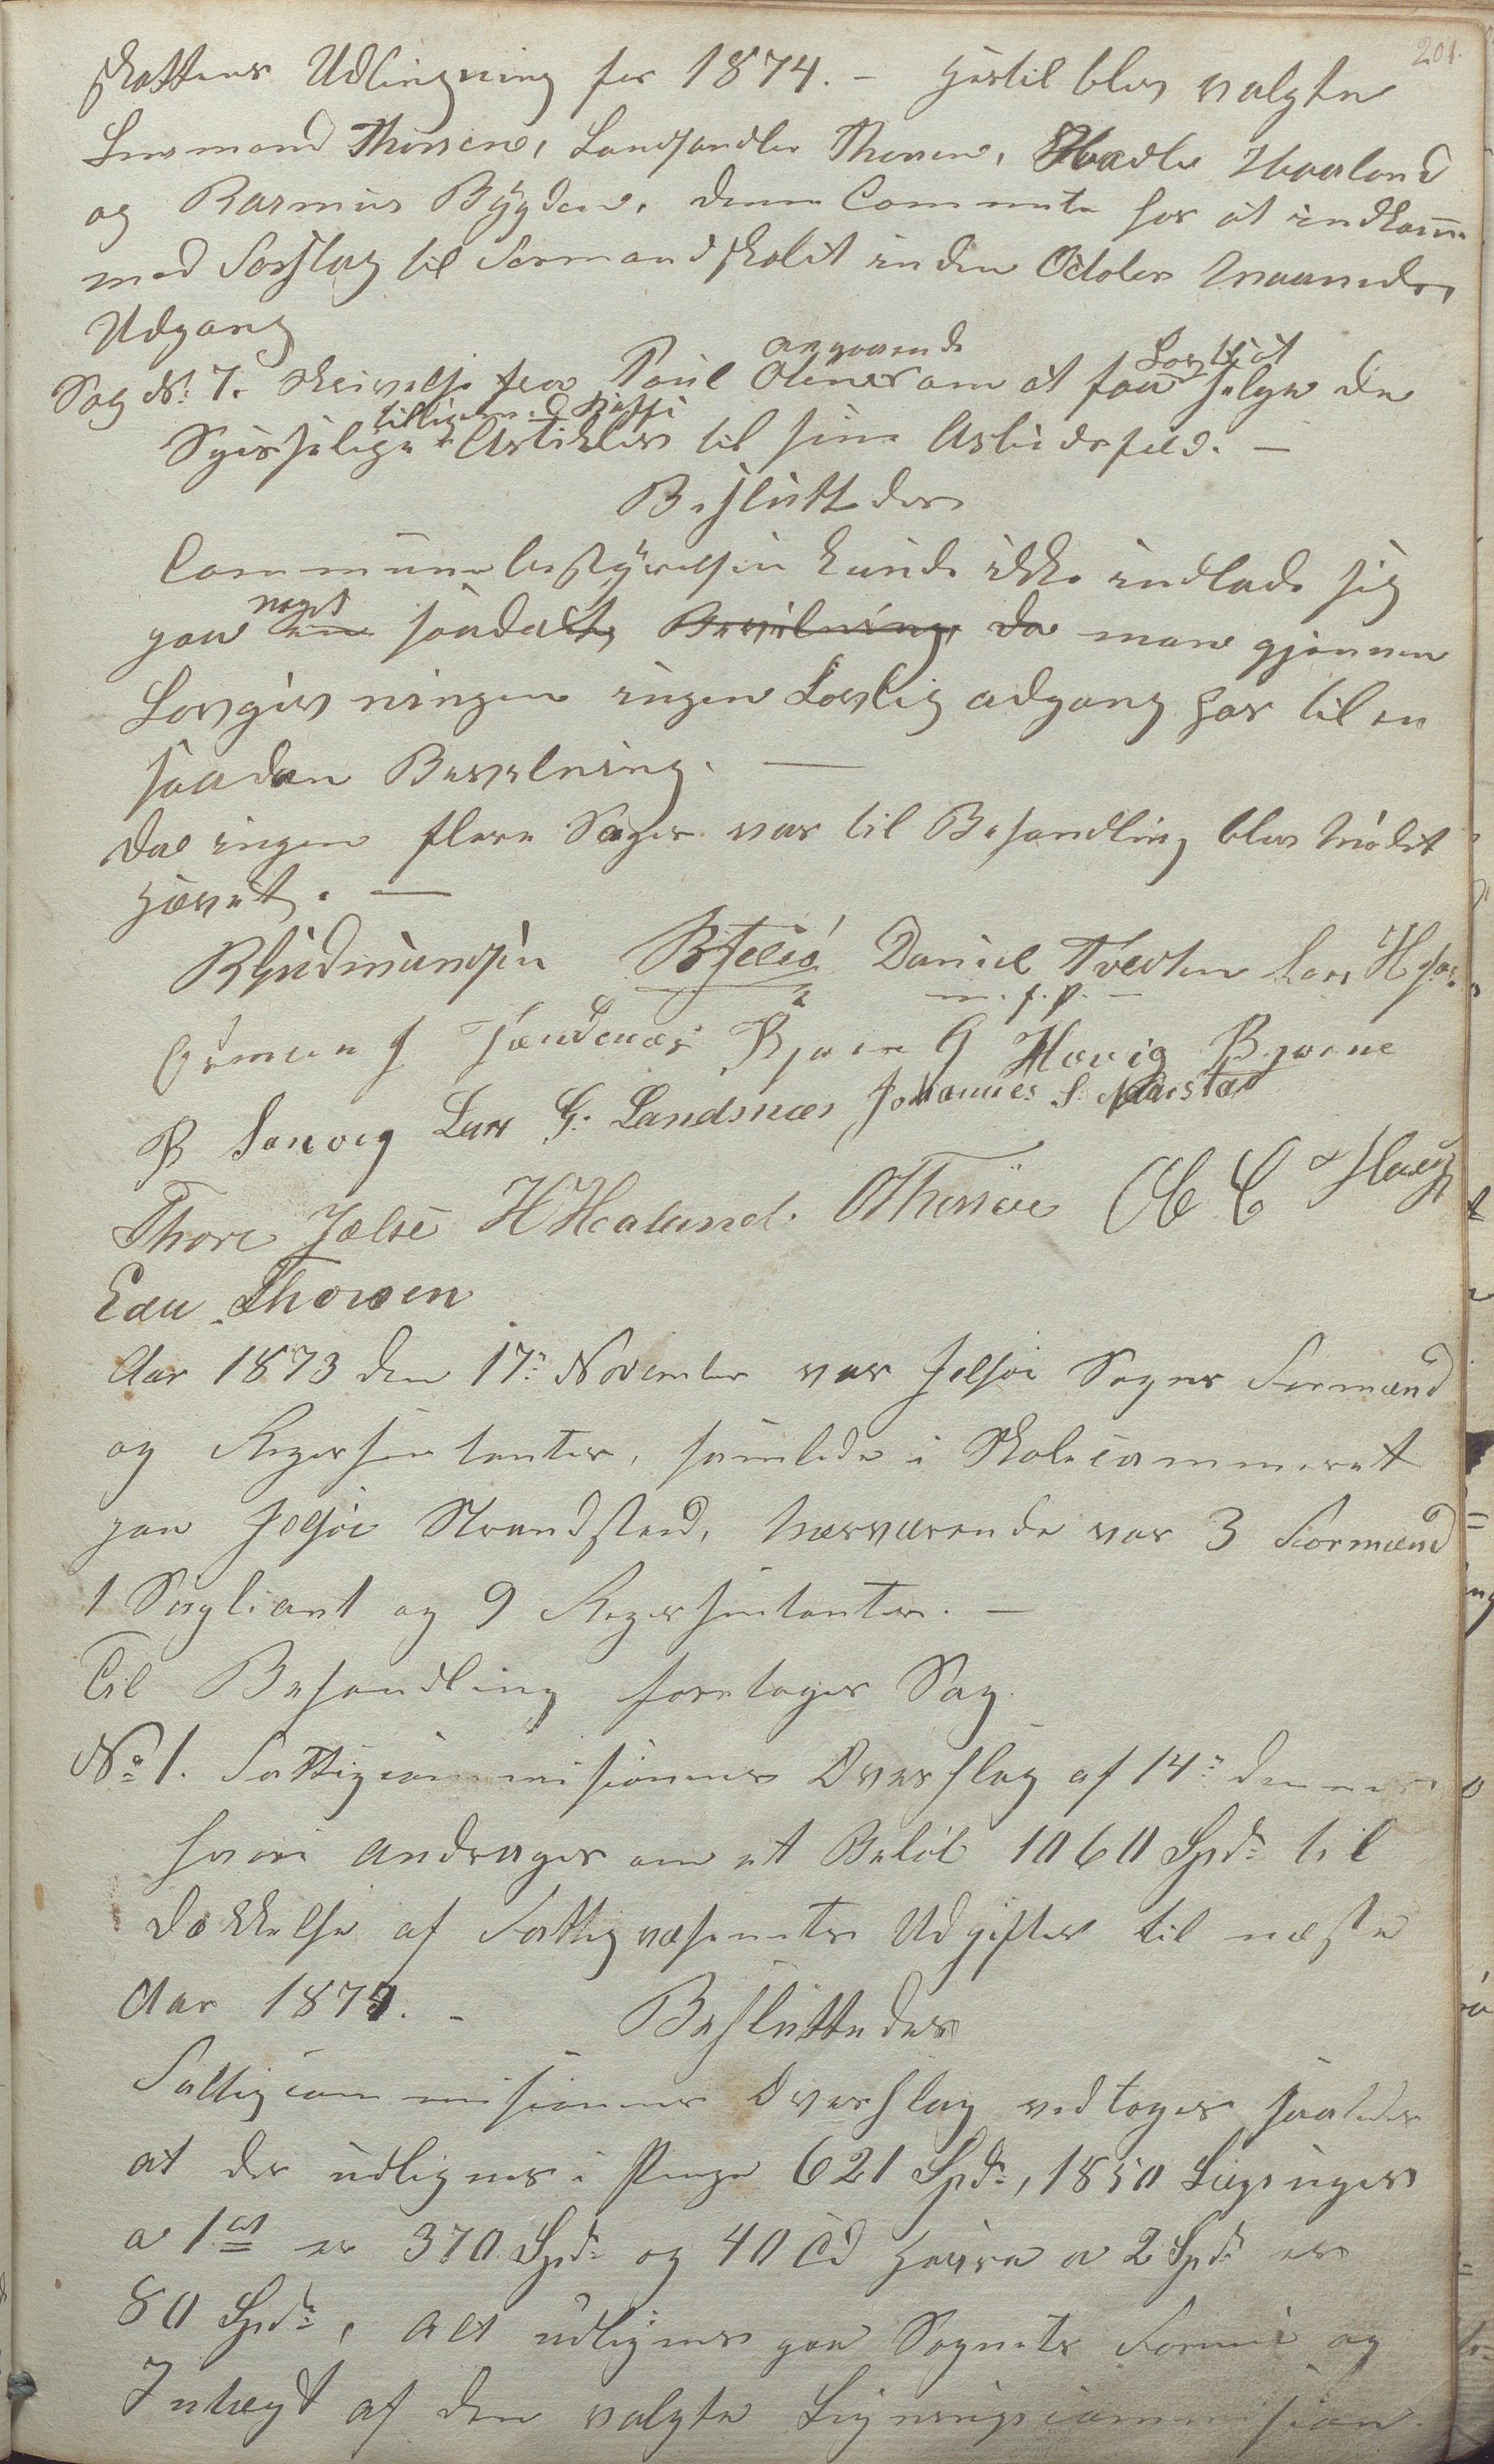 201.
Skattens Udligning for 1874. – Hertil blev valgte
Lensmand Thorsen, Landhandler Thorsen, Hadle Haaland
og Rasmus Bygden, denne Commite har at indkomme
med Forslag til Formandskabet inden October Maaneds
Udgang
angaaende Lov til at
Sag No 7. Skrivelse fra Poul Olines om at faa sælge de
tilligemed Kaffe
Spisselige Artikler til sine Arbeidsfolk. –
Besluttedes
Communebestyrelsen kunde ikke indlade sig
noget
paa en saadant, Bevilning, da man gjennem
Lovgivningen ingen Lovlig adgang har til en
saadan Bevilning. –
Da ingen flere Sager var til Behandling blev Mødet
Hævet. –
RGudmundsen BJelsø Daniel Tveden Lars H
m. f. p. –
G Sandenæs Bjørn G Hævig Bjørne
B Sanvig Lars G. Landsnæs Johannes S.
Thore Jelse H Haaland. OThorsen
Edu. Thorsen
Aar 1873 den 17de November var Jelsøe Sogns Formænd
og Representanter, samlede i Skolecammeret
paa Jelsøe Strandsted, nærværende var 3 Formænd
1 Supliant og 9 Representanter. –
Til Behandling foretoges Sag
No 1. Fattigcommisionens Overslag af 14de dennes
hvori andrages om et Beløb 1060 Spd. til
Dækkelse af Fattigvæsenets Udgifter til næste
Aar 1874. – Besluttedes
Fattigcommisionens Overslag vedtoges saaledes
at der udlignes i Penge 621 Spd., 1850 Lægninger
a 1 er 370 Spd. og 40 Høire a 2 Spd. er
80 Spd., alt udlignes paa Sognets Formue og
Intægt af den valgte Ligningscommision.